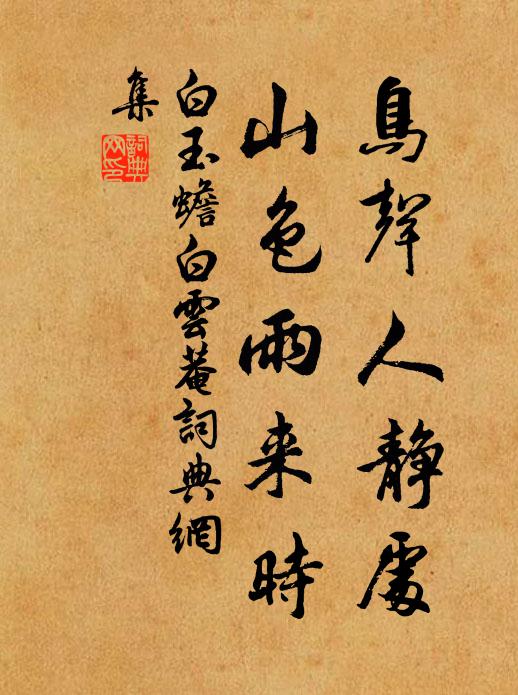 鳥聲人靜處
山色雨来時
白玉蟾白雲菴詞典網
集
詞典
网印